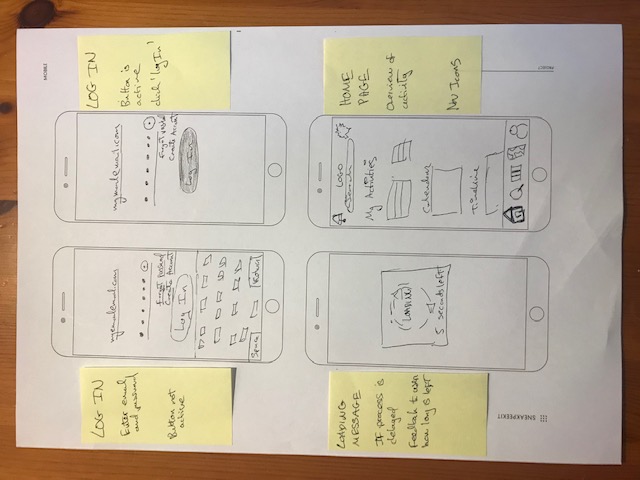 MOBILE
LOG IN
Enter email
and password
Button not
active
myemailemail.com
Forgot password
Create Account
Log In
Space
myemailemail.com
Create Account
Log In
LOG IN
Button is
active
click 'log In'
LOADING
MESSAGE
IF process is
delayed
Feedback to user
how long is left
LOADING
5 seconds left
LOGO
Search
My Activities
Calendar
Timeline
HOME
PAGE
Overview of
activity
Nav Icons
SNEAKPEEKIT
PROJECT